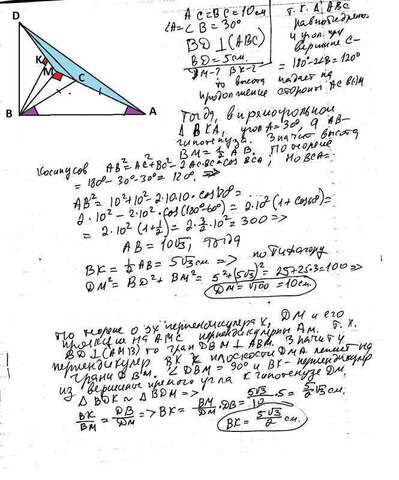 D
K
M
C
B
A
AC=BC=10см
∠A=∠B=30°
BD⊥(ABC)
BD=5см.
DM-? BK-?
т.к. Δ ABC
равнобедрен.
и угол при
вершине C-
=180°-2∠B=120°
то высота падает на
продолжение стороны AC BЄM
Тогда, в прямоугольной
Δ BKA, угол A=30°, а AB-
гипотенуза. Значит высота
BM=½AB. По теореме
Косинусов AB²=AC²+BC²-2AC·BC×cos BCA; но BCA=
=180°-30°-30°=120°. =>
AB²=10²+10²-2·10·10·cos120°=
2·10²-2·10²·cos(180°-60°)=2·10²(1+cos60°)=
=2·10²(1+½)=2·3/2·10²=300=>
AB=10√3, Тогда
BK=½AB=5√3см=> по Пифагору
DM²=BD²+BM²=5²+(5√3)²=25+25·3=100=>
DM=√100=10см.
По теореме о 3х перпендикулярах, DM и его
проекция на AMC перпендикулярны AM. Т.к.
BD⊥(AMB) то грань DBM⊥ABM. Значит
перпендикуляр BK к плоскости DMA лежит на
грани DBM. ∠DBM=90° и BK- перпендикуляр
из вершины прямого угла к гипотенузе DM.
Δ BDK ~ Δ BDM =>
BK/BM=DB/DM=>BK=BM/DM·DB=5√3/10·5=5/2√3см.
BK=5√3/2см.